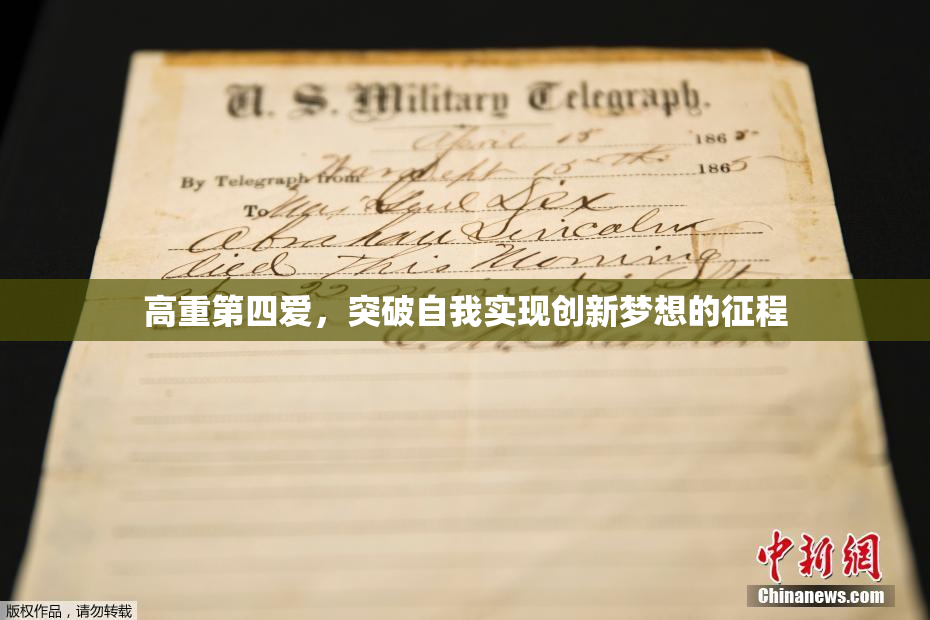 U. S. Military Telegraph.
April 15 1865
By Telegraph from War Dept 15th 1865
To Maj Genl Dix
Abraham Lincoln
died This Morning
at 22 minutes after
高重第四爱，突破自我实现创新梦想的征程
E. M. Stanton
中新網
Chinanews.com
版权作品，请勿转载